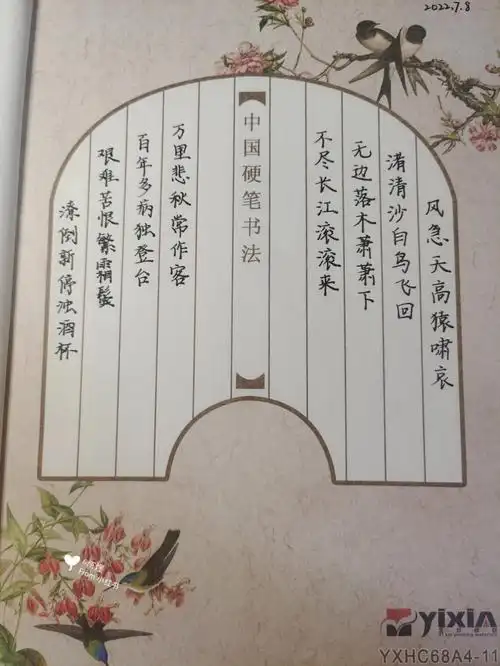 2022.7.8
风急天高猿啸哀
渚清沙白鸟飞回
无边落木萧萧下
不尽长江滚滚来
中国硬笔书法
万里悲秋常作客
百年多病独登台
艰难苦恨繁霜鬓
潦倒新停浊酒杯
From 小红书
yixin
YXHC68A4-11